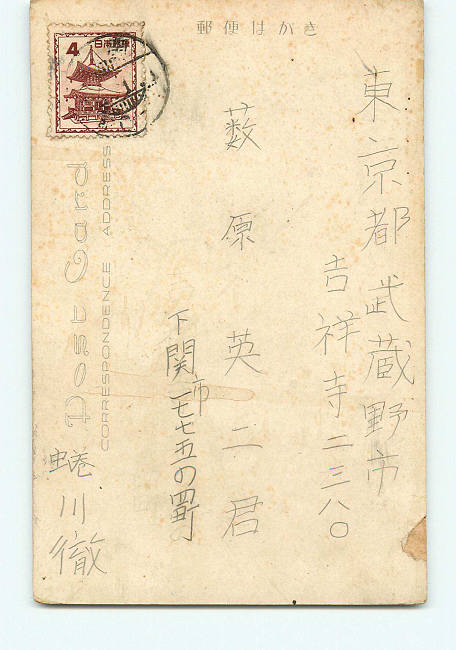 郵便はがき
東京都武蔵野市
吉祥寺二三八〇
薮原英二君
下関市
蜷川徹
4
日本郵便
Post Card
CORRESPONDENCE ADDRESS